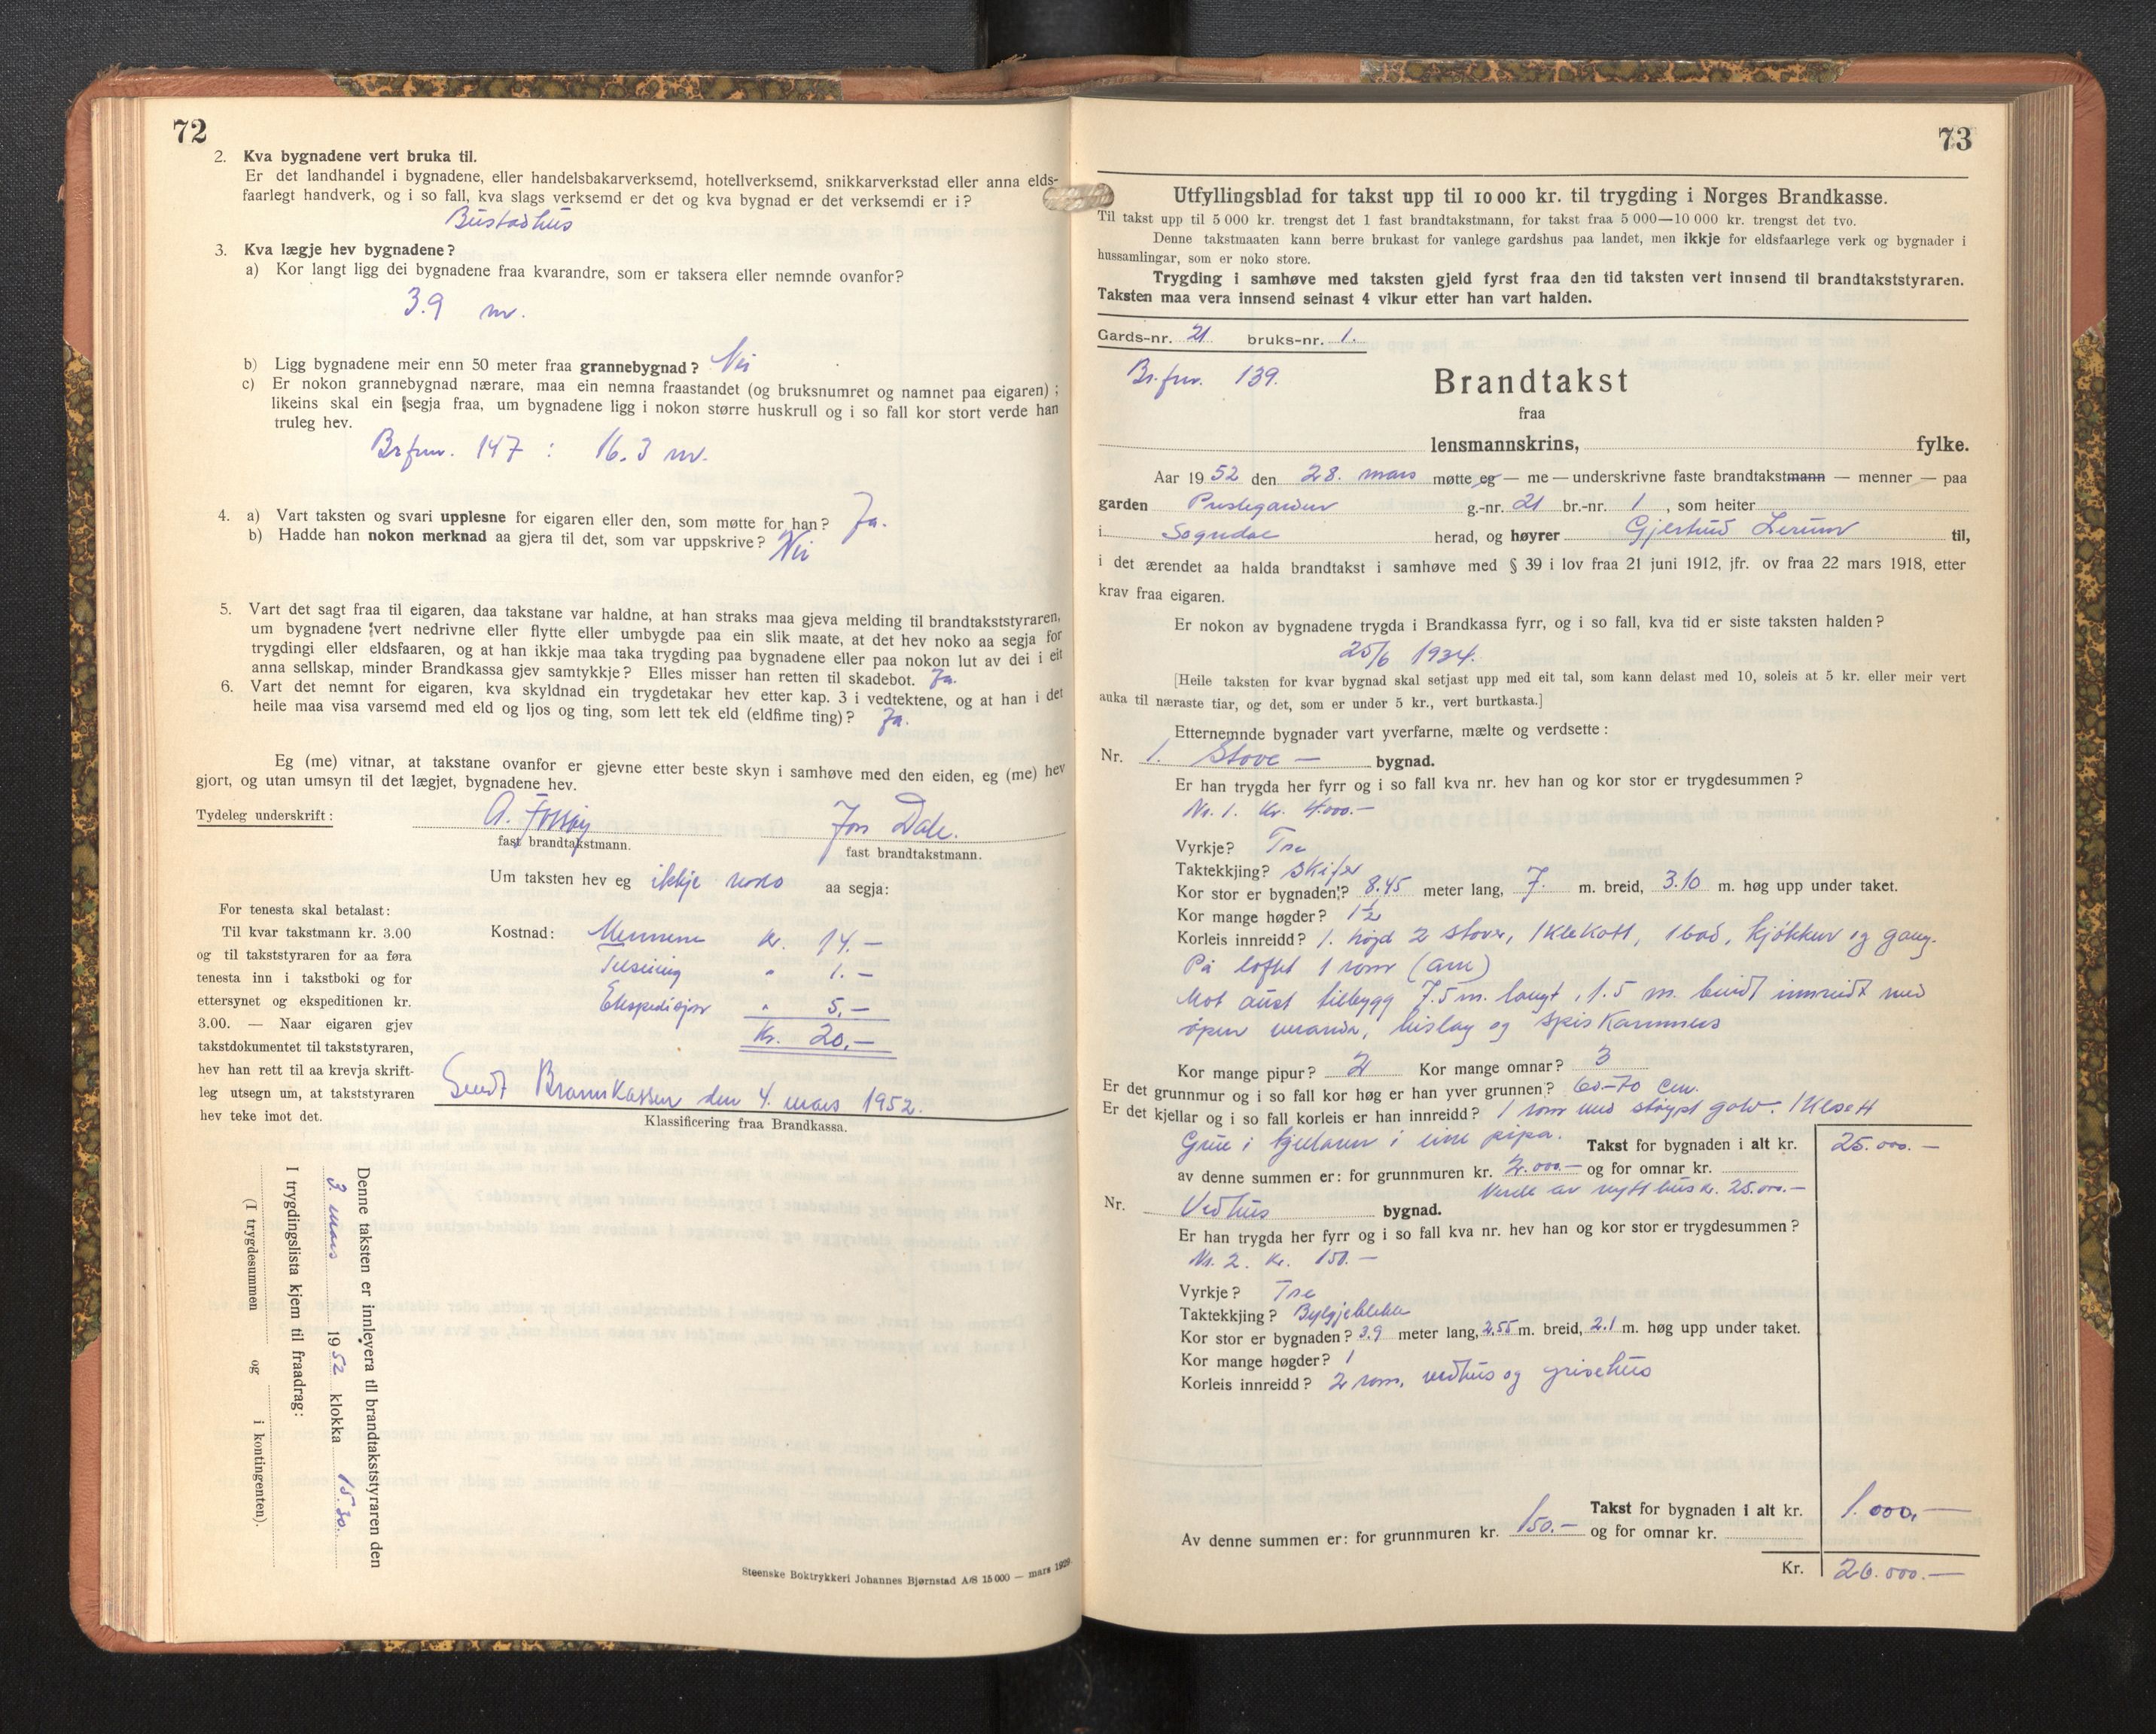 72
2. Kva bygnadene vert bruka til.
Er det landhandel i bygnadene, eller handelsbakarverksemd, hotellverksemd, snikkarverkstad eller anna elds-
faarlegt handverk, og i so fall, kva slags verksemd er det og kva bygnad er det verksemdi er i?
Bustadhus
3. Kva lægje hev bygnadene?
a) Kor langt ligg dei bygnadene fraa kvarandre, som er taksera eller nemnde ovanfor?
3.9 m.
b) Ligg bygnadene meir enn 50 meter fraa grannebygnad? Nei
c) Er nokon grannebygnad nærare, maa ein nemna fraastandet (og bruksnumret og namnet paa eigaren);
likeins skal ein segja fraa, um bygnadene ligg i nokon større huskrull og i so fall kor stort verde han
truleg hev.
Br.fnr. 147 : 16.3 m.
4. a) Vart taksten og svari upplesne for eigaren eller den, som møtte for han? Ja.
b) Hadde han nokon merknad aa gjera til det, som var uppskrive? Nei
5. Vart det sagt fraa til eigaren, daa takstane var haldne, at han straks maa gjeva melding til brandtakststyraren,
um bygnadene vert nedrivne eller flytte eller umbygde paa ein slik maate, at det hev noko aa segja for
trygdingi eller eldsfaaren, og at han ikkje maa taka trygding paa bygnadene eller paa nokon lut av dei i eit
anna sellskap, minder Brandkassa gjev samtykkje? Elles misser han retten til skadebot. Ja.
6. Vart det nemnt for eigaren, kva skyldnad ein trygdetakar hev etter kap. 3 i vedtektene, og at han i det
heile maa visa varsemd med eld og ljos og ting, som lett tek eld (eldfime ting)? Ja.
Eg (me) vitnar, at takstane ovanfor er gjevne etter beste skyn i samhøve med den eiden, eg (me) hev
gjort, og utan umsyn til det lægjet, bygnadene hev.
Tydeleg underskrift: A. Fossøy Jon Dale.
fast brandtakstmann. fast brandtakstmann.
Um taksten hev eg ikkje noko aa segja:
For tenesta skal betalast:
Til kvar takstmann kr. 3.00
og til takststyraren for aa føra
tenesta inn i takstboki og for
ettersynet og ekspeditionen kr.
3.00. — Naar eigaren gjev
takstdokumentet til takststyraren,
hev han rett til aa krevja skrift-
leg utsegn um, at takststyraren
hev teke imot det.
Kostnad: Mennene kr. 14.—
Telseiing " 1.—
Ekspedisjon " 5.—
Kr. 20.—
Sendt Brannkassen den 4. mars 1952.
Klassificering fraa Brandkassa.
Denne taksten er innlevera til brandtakststyraren den
3. mars 1952 klokka 15.30.
I trygdingslista kjem til fraadrag:
(I trygdesummen og i kontingenten).
Steenske Boktrykkeri Johannes Bjørnstad A/S 15 000 — mars 1929
73
Utfyllingsblad for takst upp til 10 000 kr. til trygding i Norges Brandkasse.
Til takst upp til 5 000 kr. trengst det 1 fast brandtakstmann, for takst fraa 5 000—10 000 kr. trengst det tvo.
Denne takstmaaten kann berre brukast for vanlege gardshus paa landet, men ikkje for eldsfaarlege verk og bygnader i
hussamlingar, som er noko store.
Trygding i samhøve med taksten gjeld fyrst fraa den tid taksten vert innsend til brandtakststyraren.
Taksten maa vera innsend seinast 4 vikur etter han vart halden.
Gards-nr. 21 bruks-nr. 1.
Br.fnr. 139.
Brandtakst
fraa
lensmannskrins, fylke.
Aar 1952 den 28. mars møtte eg — me — underskrivne faste brandtakstmann — menner — paa
garden Prestegarden g.-nr. 21 br.-nr. 1, som heiter
i Sogndal herad, og høyrer Gjertrud Lerum til,
i det ærendet aa halda brandtakst i samhøve med § 39 i lov fraa 21 juni 1912, jfr. ov fraa 22 mars 1918, etter
krav fraa eigaren.
Er nokon av bygnadene trygda i Brandkassa fyrr, og i so fall, kva tid er siste taksten halden?
25/6 1934.
[Heile taksten for kvar bygnad skal setjast upp med eit tal, som kann delast med 10, soleis at 5 kr. eller meir vert
auka til næraste tiar, og det, som er under 5 kr., vert burtkasta.]
Etternemnde bygnader vart yverfarne, mælte og verdsette:
Nr. 1. Stove — bygnad.
Er han trygda her fyrr og i so fall kva nr. hev han og kor stor er trygdesummen?
Nr. 1. Kr. 4.000.—
Vyrkje? Tre
Taktekkjing? Skifer
Kor stor er bygnaden? 8.45 meter lang, 7. m. breid, 3.10 m. høg upp under taket.
Kor mange høgder? 1½
Korleis innreidd? 1. høgd 2 stover, 1 klekott, 1 bad, kjøkken og gang.
På loftet 1 rom (are)
Mot aust tilbygg 7.5 m. langt, 1.5 m. breidt innreidt med
open veranda, bislag og spiskammers
Kor mange pipur? 2 Kor mange omnar? 3
Er det grunnmur og i so fall kor høg er han yver grunnen? 60–70 cm.
Er det kjellar og i so fall korleis er han innreidd? 1 rom med støypt golv. 1 klosett
Grue i kjellaren i eine pipa. Takst for bygnaden i alt kr. 25.000.—
av denne summen er: for grunnmuren kr. 2.000.— og for omnar kr.
Verde av nytt hus kr. 25.000.—
Nr. Vedhus bygnad.
Er han trygda her fyrr og i so fall kva nr. hev han og kor stor er trygdesummen?
Nr. 2. kr. 150.—
Vyrkje? Tre
Taktekkjing? Bylgjeblekk
Kor stor er bygnaden? 3.9 meter lang, 2.55 m. breid, 2.1 m. høg upp under taket.
Kor mange høgder? 1
Korleis innreidd? 2 rom, vedhus og grisehus
Takst for bygnaden i alt kr. 1.000.—
Av denne summen er: for grunnmuren kr. 150.— og for omnar kr.
Kr. 26.000.—